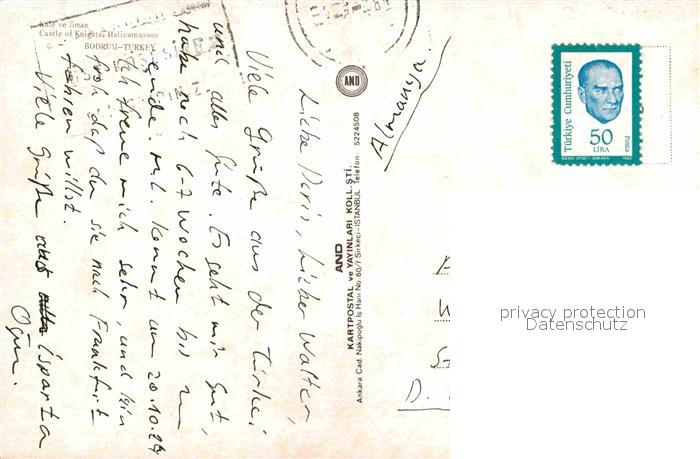 Kale ve liman
Castle of Knights, Halicarnassus
BODRUM-TURKEY
Liebe Doris, Lieber Walter,
Viele Grüße aus der Türkei
und alles Gute. Es geht mir Gut,
habe noch 6-7 Wochen bis zu
ende. M.L. kommt am 20.10.84
Ich freue mich sehr, und bin
froh daß du sie nach Frankfurt
fahren willst.
Viele Grüße aus Isparta
AND
AND
KARTPOSTAL ve YAYINLARI KOLL. ŞTİ.
Ankara Cad. Nakipoğlu İş Hanı No:60/f Sirkeci-İSTANBUL Telefon: 5224508
Almanya.
Türkiye Cumhuriyeti
50
LİRA
Posta
D.
privacy protection
Datenschutz